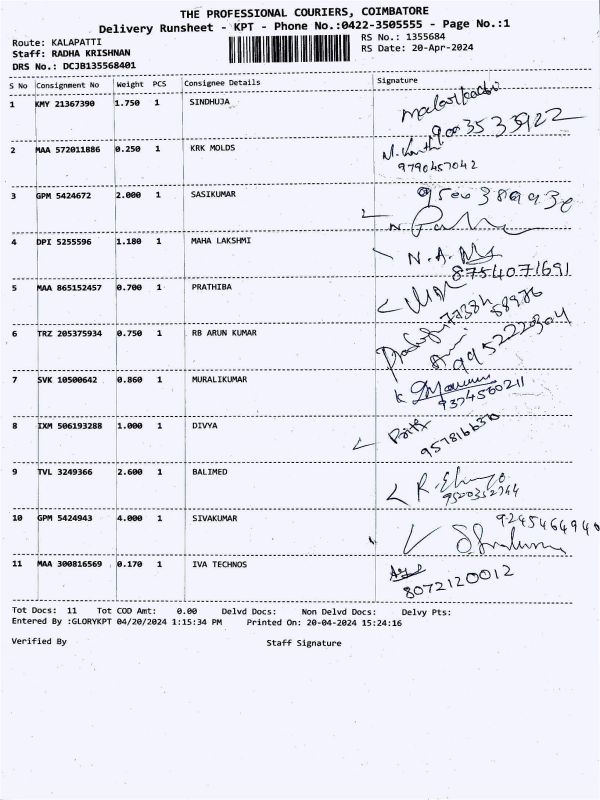 THE PROFESSIONAL COURIERS, COIMBATORE
Delivery Runsheet - KPT - Phone No.:0422-3505555 - Page No.:1
Route: KALAPATTI
RS No.: 1355684
Staff: RADHA KRISHNAN
RS Date: 20-Apr-2024
DRS No.: DCJB135568401
S No Consignment No Weight PCS Consignee Details Signature
1 KMY 21367390 1.750 1 SINDHUJA
2 MAA 572011886 0.250 1 KRK MOLDS
9790457042
3 GPM 5424672 2.000 1 SASIKUMAR
4 DPI 5255596 1.180 1 MAHA LAKSHMI
N.A.
8754071691
5 MAA 865152457 0.700 1 PRATHIBA
6 TRZ 205375934 0.750 1 RB ARUN KUMAR
9952220304
7 SVK 10500642 0.860 1 MURALIKUMAR
8 IXM 506193288 1.000 1 DIVYA
9 TVL 3249366 2.600 1 BALIMED
10 GPM 5424943 4.000 1 SIVAKUMAR
9245464940
11 MAA 300816569 0.170 1 IVA TECHNOS
8072120012
Tot Docs: 11 Tot COD Amt: 0.00 Delvd Docs: Non Delvd Docs: Delvy Pts:
Entered By :GLORYKPT 04/20/2024 1:15:34 PM Printed On: 20-04-2024 15:24:16
Verified By Staff Signature